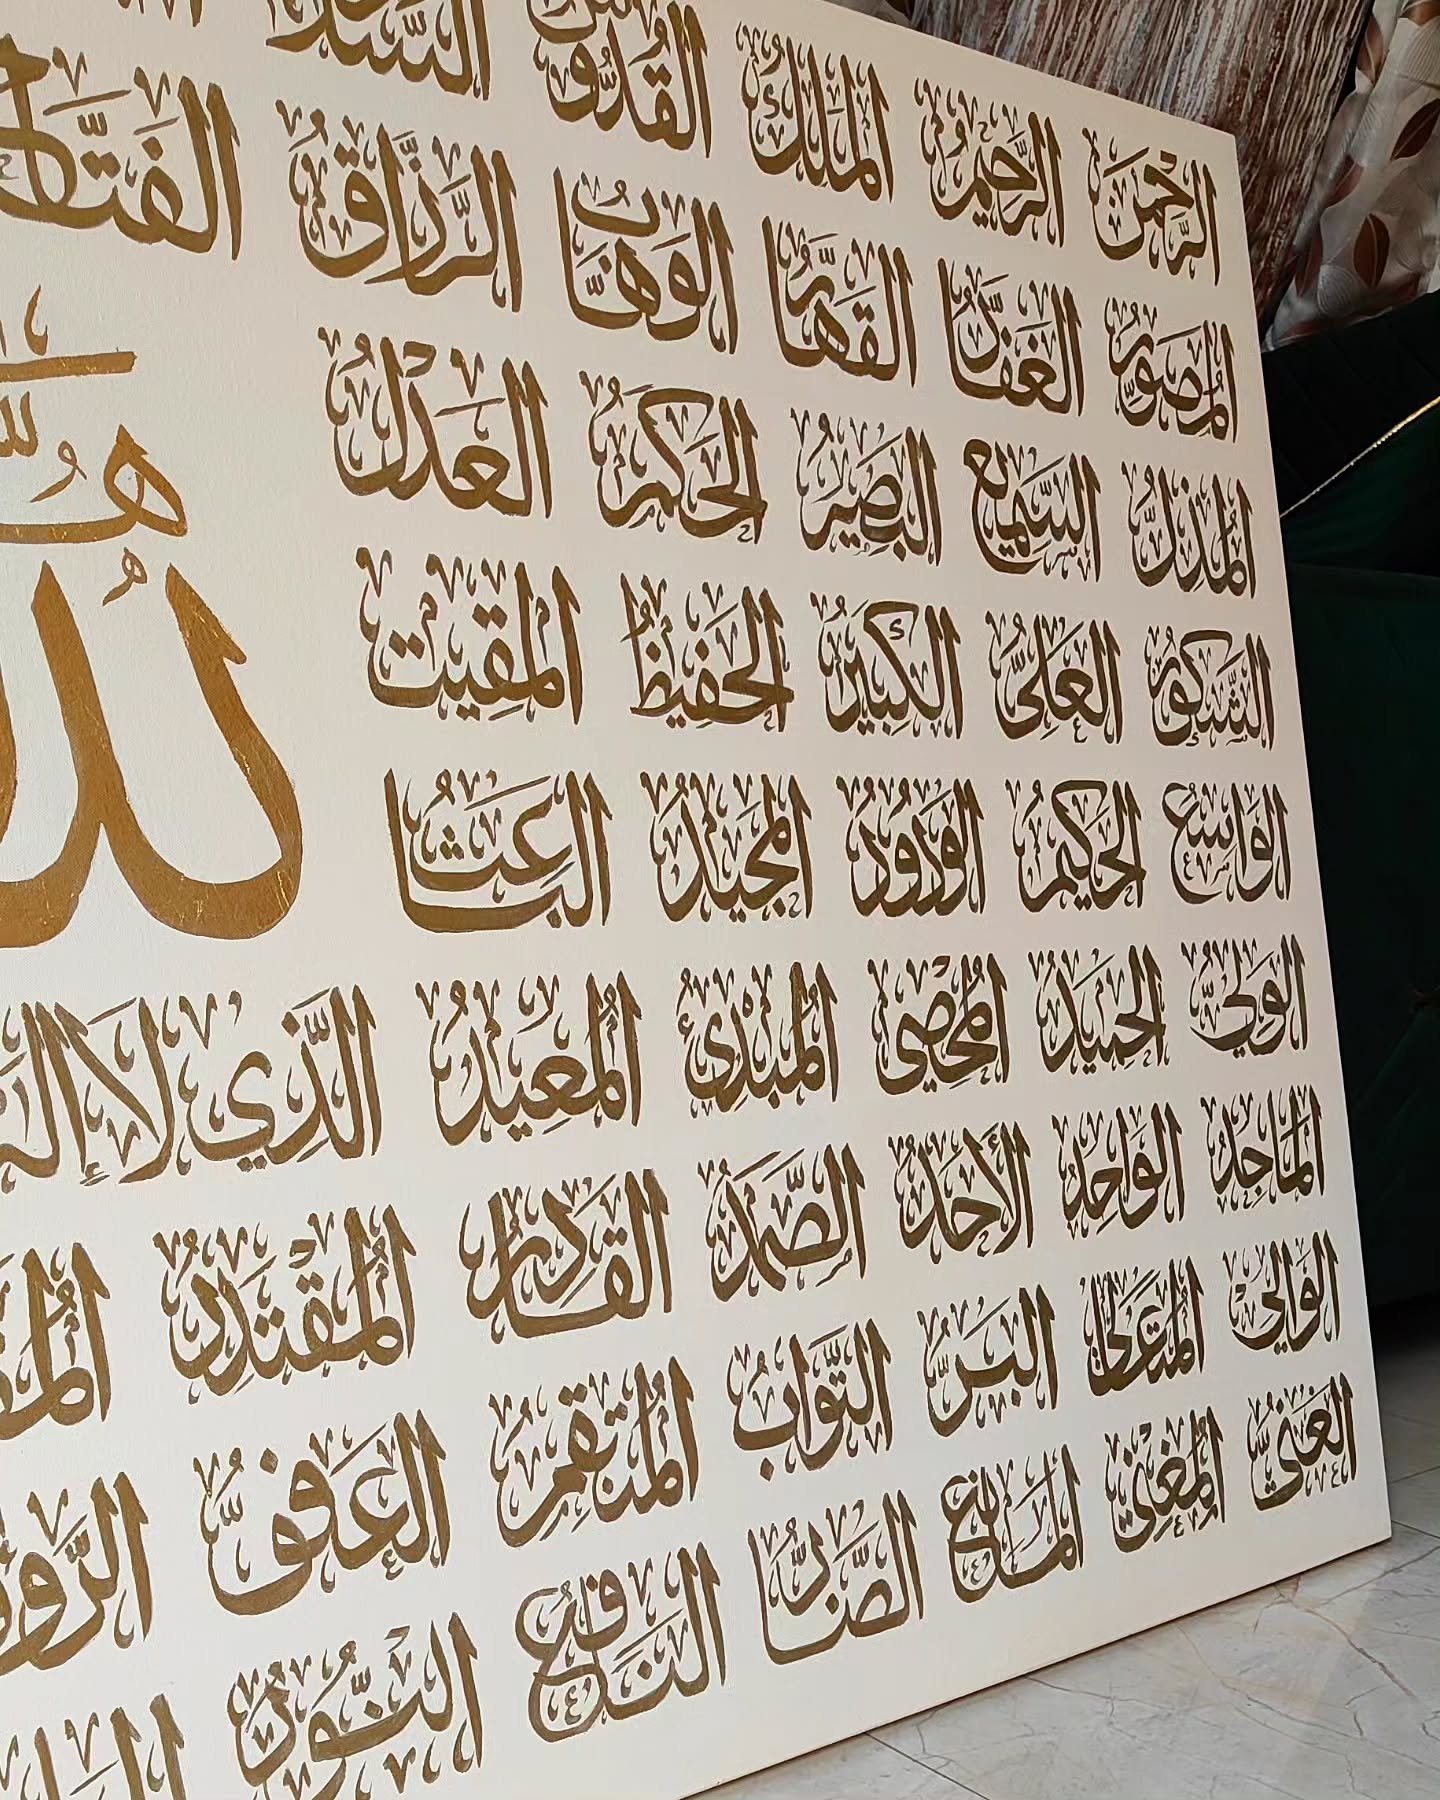 الرَّحْمَنُ الرَّحِيمُ المَلِكُ القُدُّوسُ السَّلَا
المُصَوِّرُ الغَفَّارُ القَهَّارُ الوَهَّابُ الرَّزَّاقُ الفَتَّاح
المُذِلُّ السَّمِيعُ البَصِيرُ الحَكَمُ العَدْلُ
الشَّكُورُ العَلِيُّ الكَبِيرُ الحَفِيظُ المُقِيتُ
هُ اللهُ
الوَاسِعُ الحَكِيمُ الوَدُودُ المَجِيدُ البَاعِثُ
الوَلِيُّ الحَمِيدُ المُحْصِي المُبْدِئُ المُعِيدُ الَّذِي لَا إِلَه
المَاجِدُ الوَاحِدُ الأَحَدُ الصَّمَدُ القَادِرُ المُقْتَدِرُ
الوَالِي المُتَعَالِي البَرُّ التَّوَّابُ المُنْتَقِمُ العَفُوُّ الرَّؤُ
الغَنِيُّ المُغْنِي المَانِعُ الضَّارُّ النَّافِعُ النُّورُ